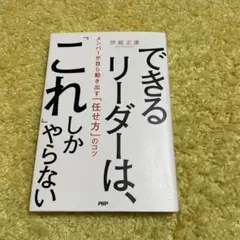 できる
リーダーは、
「これしか
」やらない
メンバーが自ら動き出す「任せ方」のコツ
伊庭正康
PHP